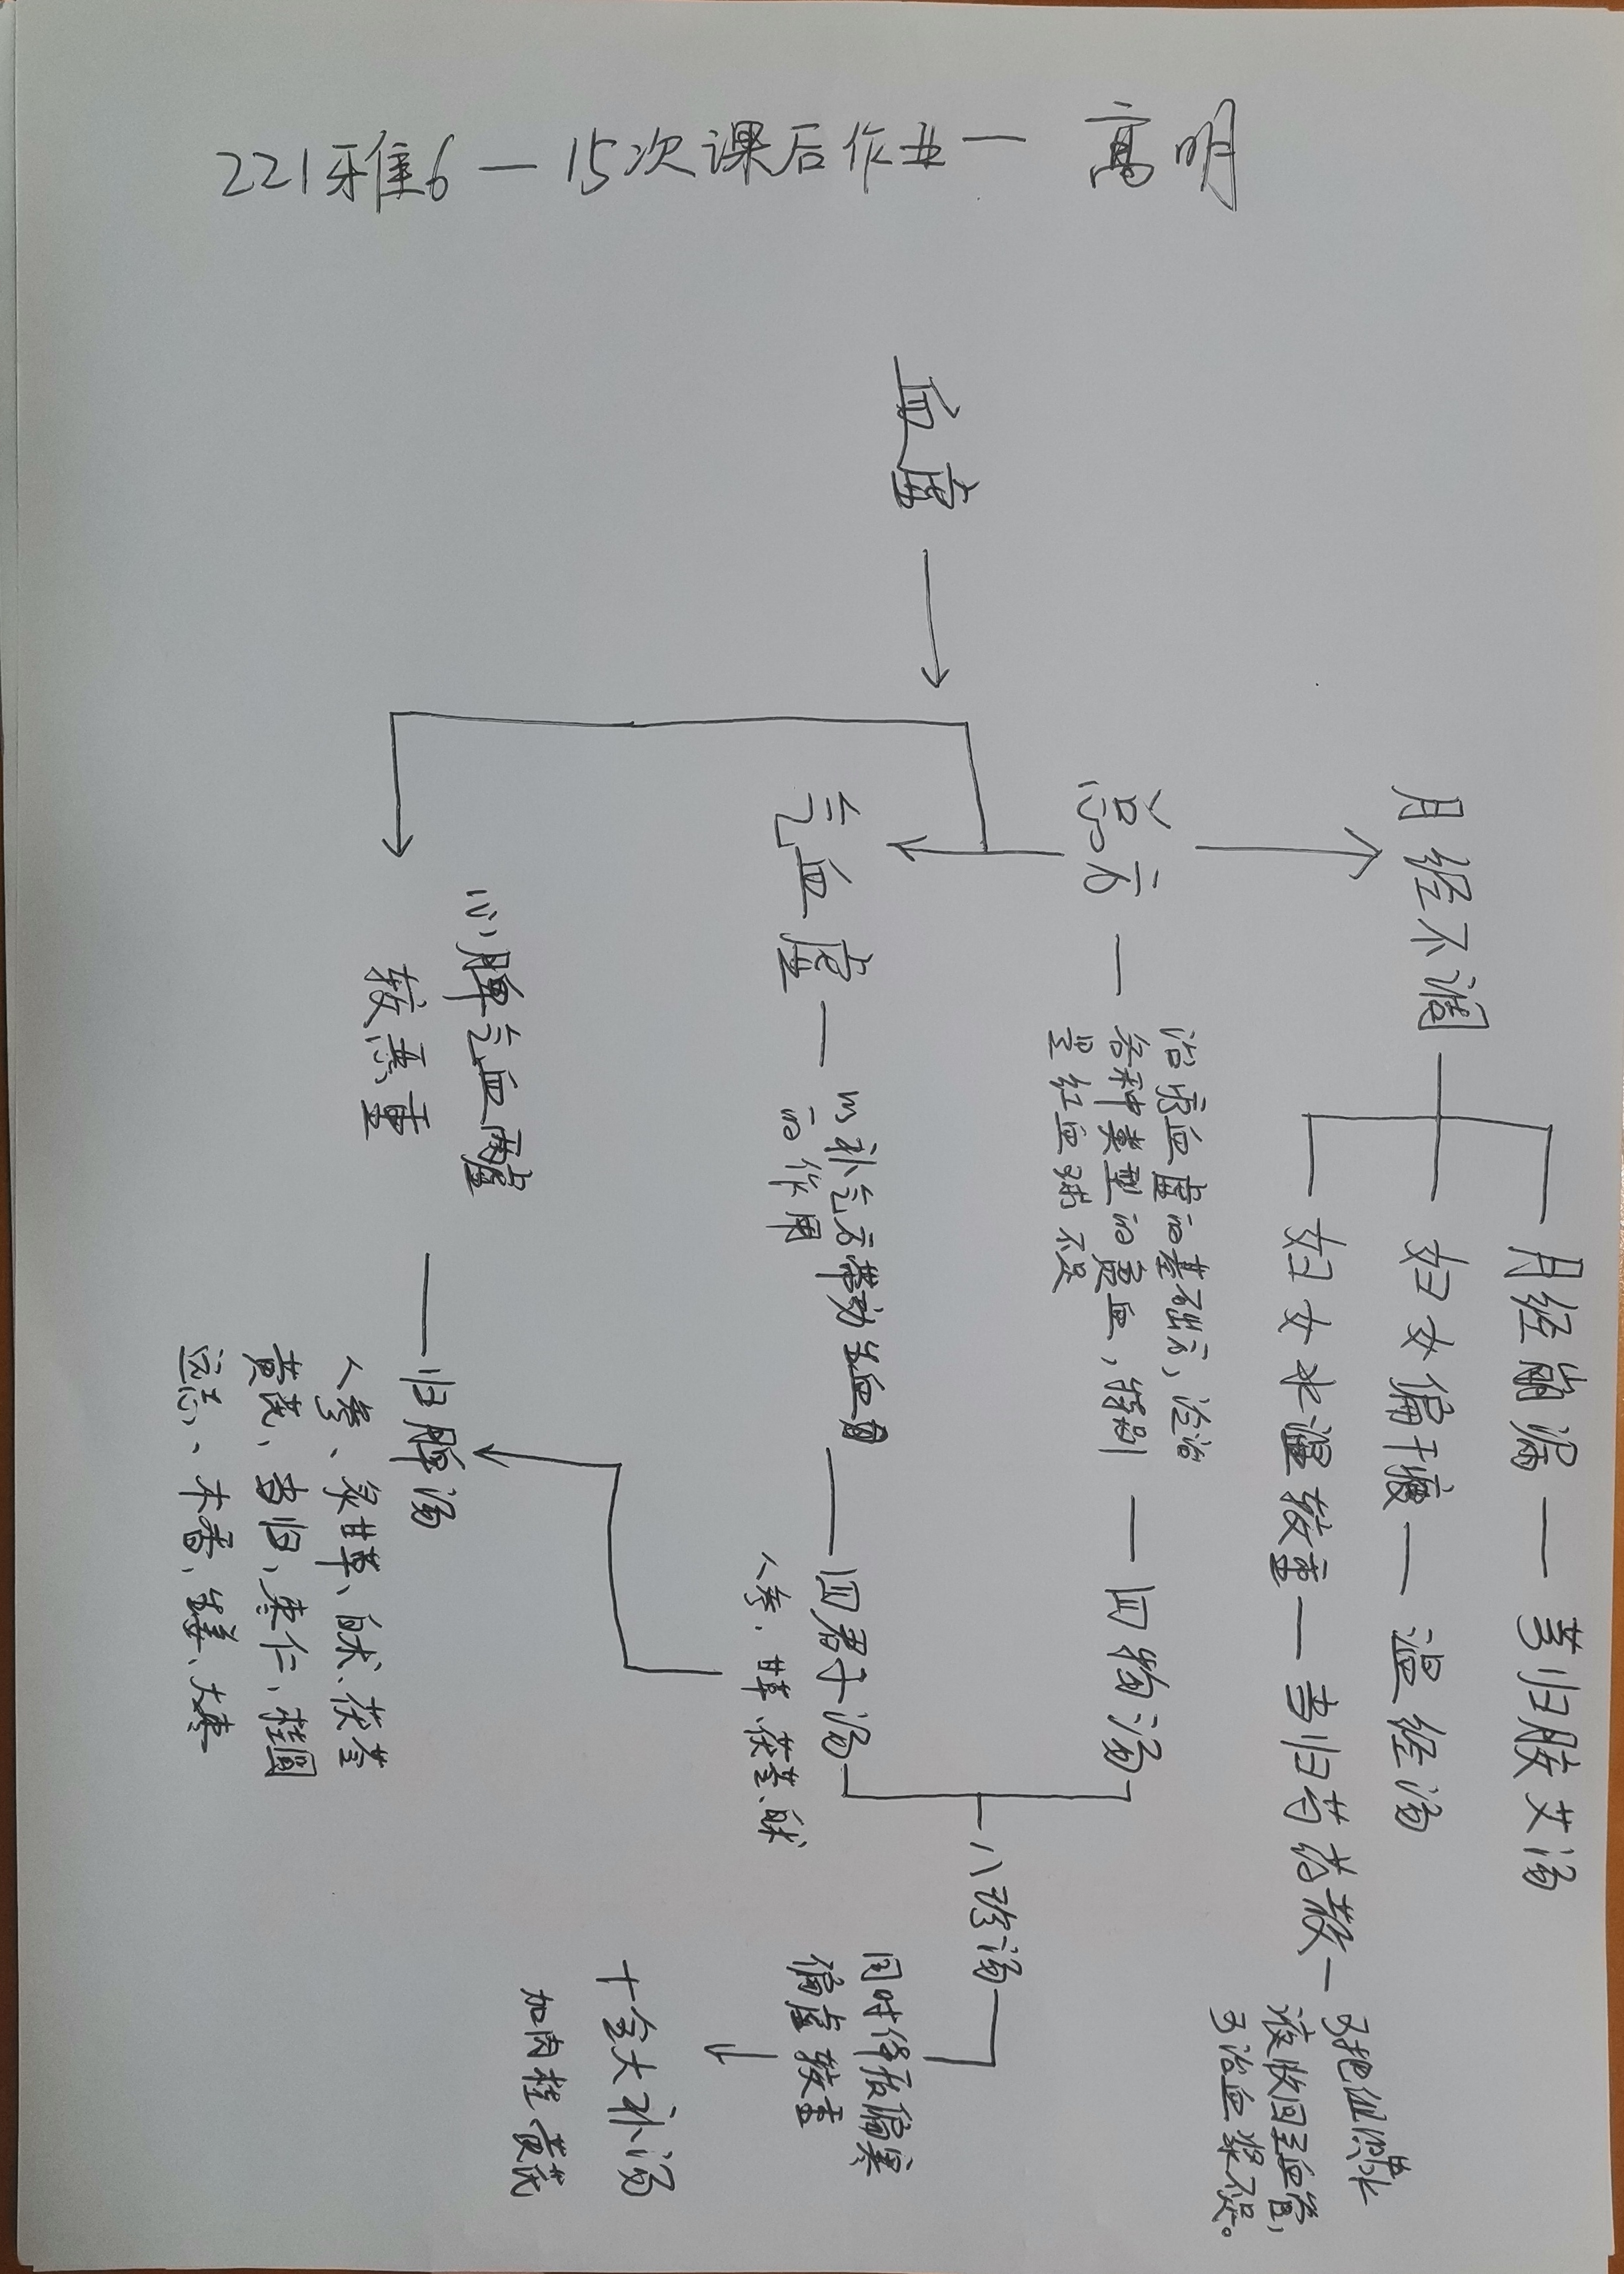 221雅6一15次课后作业一 高明
血虚
月经不调
月经崩漏 — 芎归胶艾汤
妇女偏干瘦 — 温经汤
妇女水湿较重 — 当归芍药散 —
可把组织水
液收回至血管,
可治血浆不足。
总方 —
治疗血虚的基础方, 治
各种类型的贫血, 特别
是红血球不足
— 四物汤
气血虚 —
以补气方带动生血
的作用
— 四君子汤
人参、甘草、茯苓、白术
八珍汤
同时伴质偏寒
偏虚较重
十全大补汤
加肉桂、黄芪
心脾气血两虚
较严重
— 归脾汤
人参、炙甘草、白术、茯苓
黄芪、当归、枣仁、桂圆
远志、木香、生姜、大枣